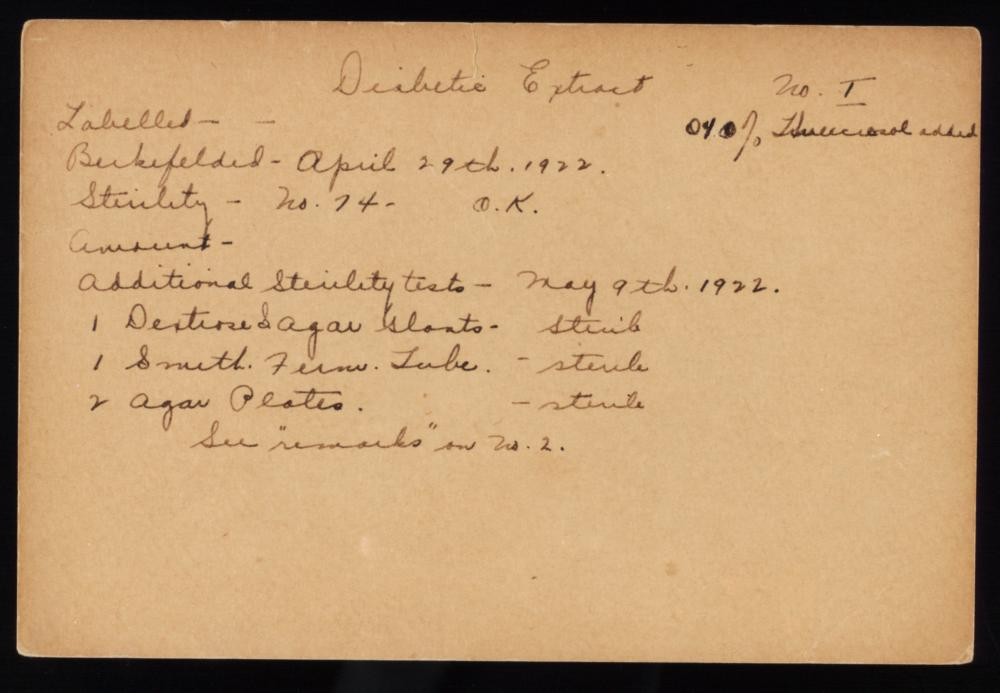 Diabetic Extract No. I
Labelled - -
% Tricresol added
Berkefelded - April 29th. 1922.
Sterility - No. 74 - O.K.
Amount -
Additional Sterility tests - May 9th. 1922.
1 Dextrose Agar Slants - Sterile
1 Smith. Ferm. Tube. - sterile
2 Agar Plates. - sterile
See "remarks" on No. 2.